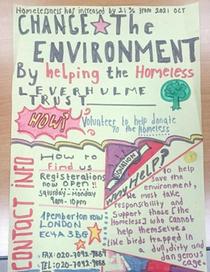 Homelessness has increased by 21% from 2021 OCT
CHANGE The
ENVIRONMENT
By helping the Homeless
LEVERHULME
TRUST
HOW?
Volunteer to help donate
to the homeless
How to
find us
Registerations
now open!!
Saturday - Monday
9am - 10pm
CONTACT INFO
1 Pemberton row
LONDON
EC4A 3BG
FAX: 020-3092-
TEL: 020-3092-
DONATION
HELP?
To help
save the
environment,
We must have
responsibility and
Support those [the
Homeless] who cannot
help themselves
like birds trapped in
a
dangerous
cage.